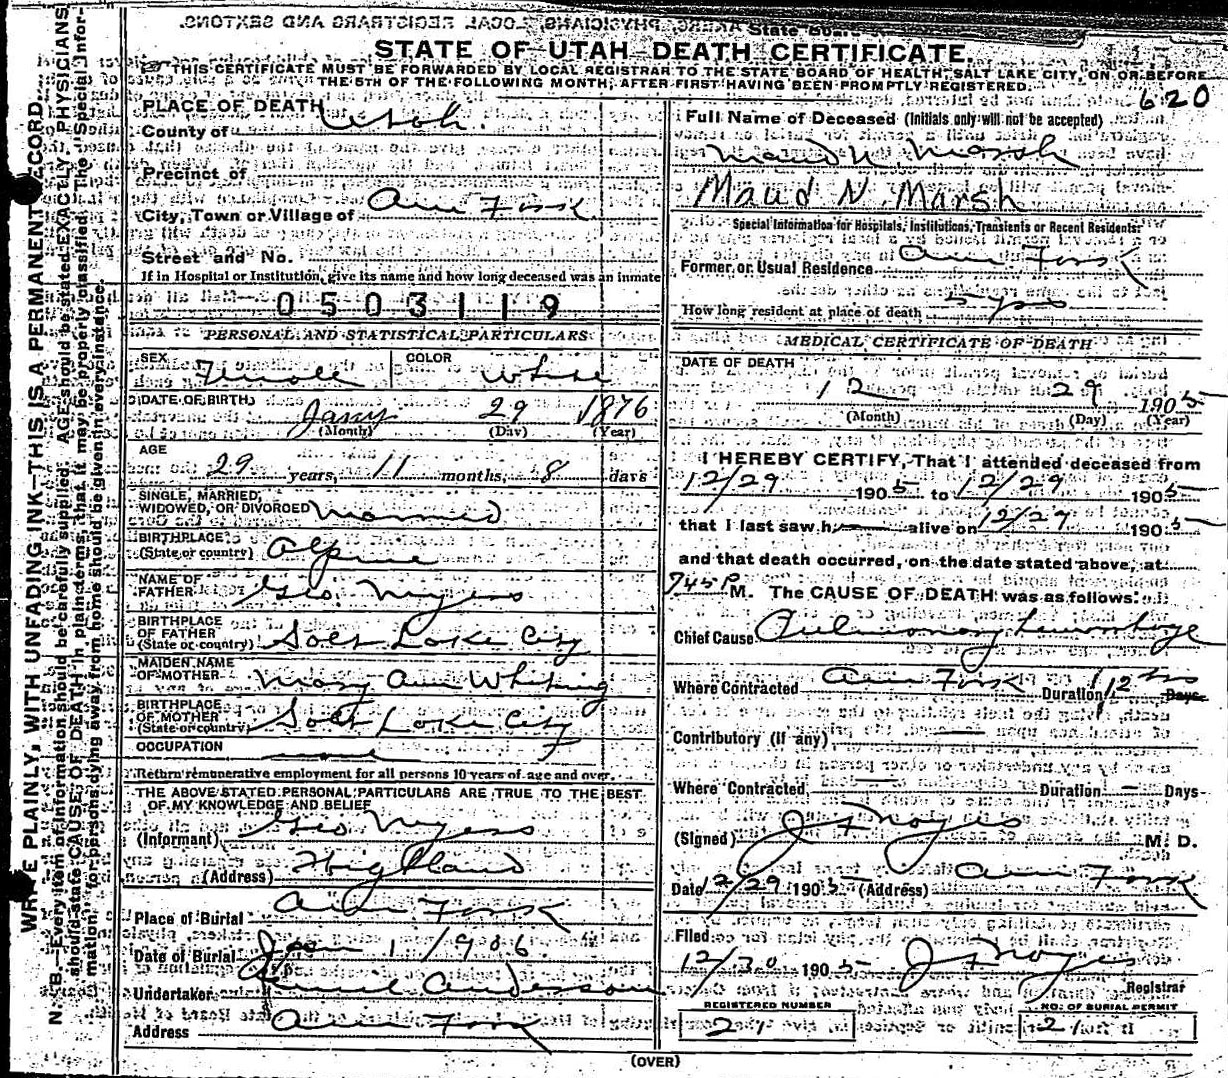 State Board
STATE OF UTAH-DEATH CERTIFICATE.
THIS CERTIFICATE MUST BE FORWARDED BY LOCAL REGISTRAR TO THE STATE BOARD OF HEALTH, SALT LAKE CITY, ON OR BEFORE
THE 5TH OF THE FOLLOWING MONTH, AFTER FIRST HAVING BEEN PROMPTLY REGISTERED.
620
WRITE PLAINLY, WITH UNFADING INK—THIS IS A PERMANENT RECORD.
N. B.—Every item of information should be carefully supplied. AGE should be stated EXACTLY. PHYSICIANS
should state CAUSE OF DEATH in plain terms, that it may be properly classified. The "Special Infor-
mation" for persons dying away from home should be given in every instance.
PLACE OF DEATH
County of Utah.
Precinct of
City, Town or Village of Am Fork
Street and No.
If in Hospital or Institution, give its name and how long deceased was an inmate
0503119
PERSONAL AND STATISTICAL PARTICULARS
SEX Female COLOR White
DATE OF BIRTH Jany 29 1876
(Month) (Day) (Year)
AGE
29 years, 11 months, 8 days
SINGLE, MARRIED,
WIDOWED, OR DIVORCED Married
BIRTHPLACE
(State or country) Alpine
NAME OF
FATHER Geo. Nyess
BIRTHPLACE
OF FATHER
(State or country) Salt Lake City
MAIDEN NAME
OF MOTHER Mary Ann Whiting
BIRTHPLACE
OF MOTHER
(State or country) Salt Lake City
OCCUPATION
Return remunerative employment for all persons 10 years of age and over.
THE ABOVE STATED PERSONAL PARTICULARS ARE TRUE TO THE BEST
OF MY KNOWLEDGE AND BELIEF
(Informant) Geo Nyess
(Address) Highland
Place of Burial Am Fork
Date of Burial Jan 1 1906
Undertaker Anderson
Address Am Fork
Full Name of Deceased (Initials only will not be accepted)
Maud N. Marsh
Maud N. Marsh
Special Information for Hospitals, Institutions, Transients or Recent Residents:
Former or Usual Residence Am Fork
How long resident at place of death 5 yrs
MEDICAL CERTIFICATE OF DEATH
DATE OF DEATH
12 29 1905
(Month) (Day) (Year)
I HEREBY CERTIFY, That I attended deceased from
12/29 1905 to 12/29 1905
that I last saw h alive on 12/29 1905
and that death occurred, on the date stated above, at
745 P M. The CAUSE OF DEATH was as follows:
Chief Cause Pulmonary Hemorrhage
Where Contracted Am Fork Duration 12 hrs Days
Contributory (if any) —
Where Contracted — Duration — Days
(Signed) J F Noyes M. D.
Date 12/29 1905 (Address) Am Fork
Filed
12/30 1905 J F Noyes
Registrar
REGISTERED NUMBER NO. OF BURIAL PERMIT
21 21
(OVER)